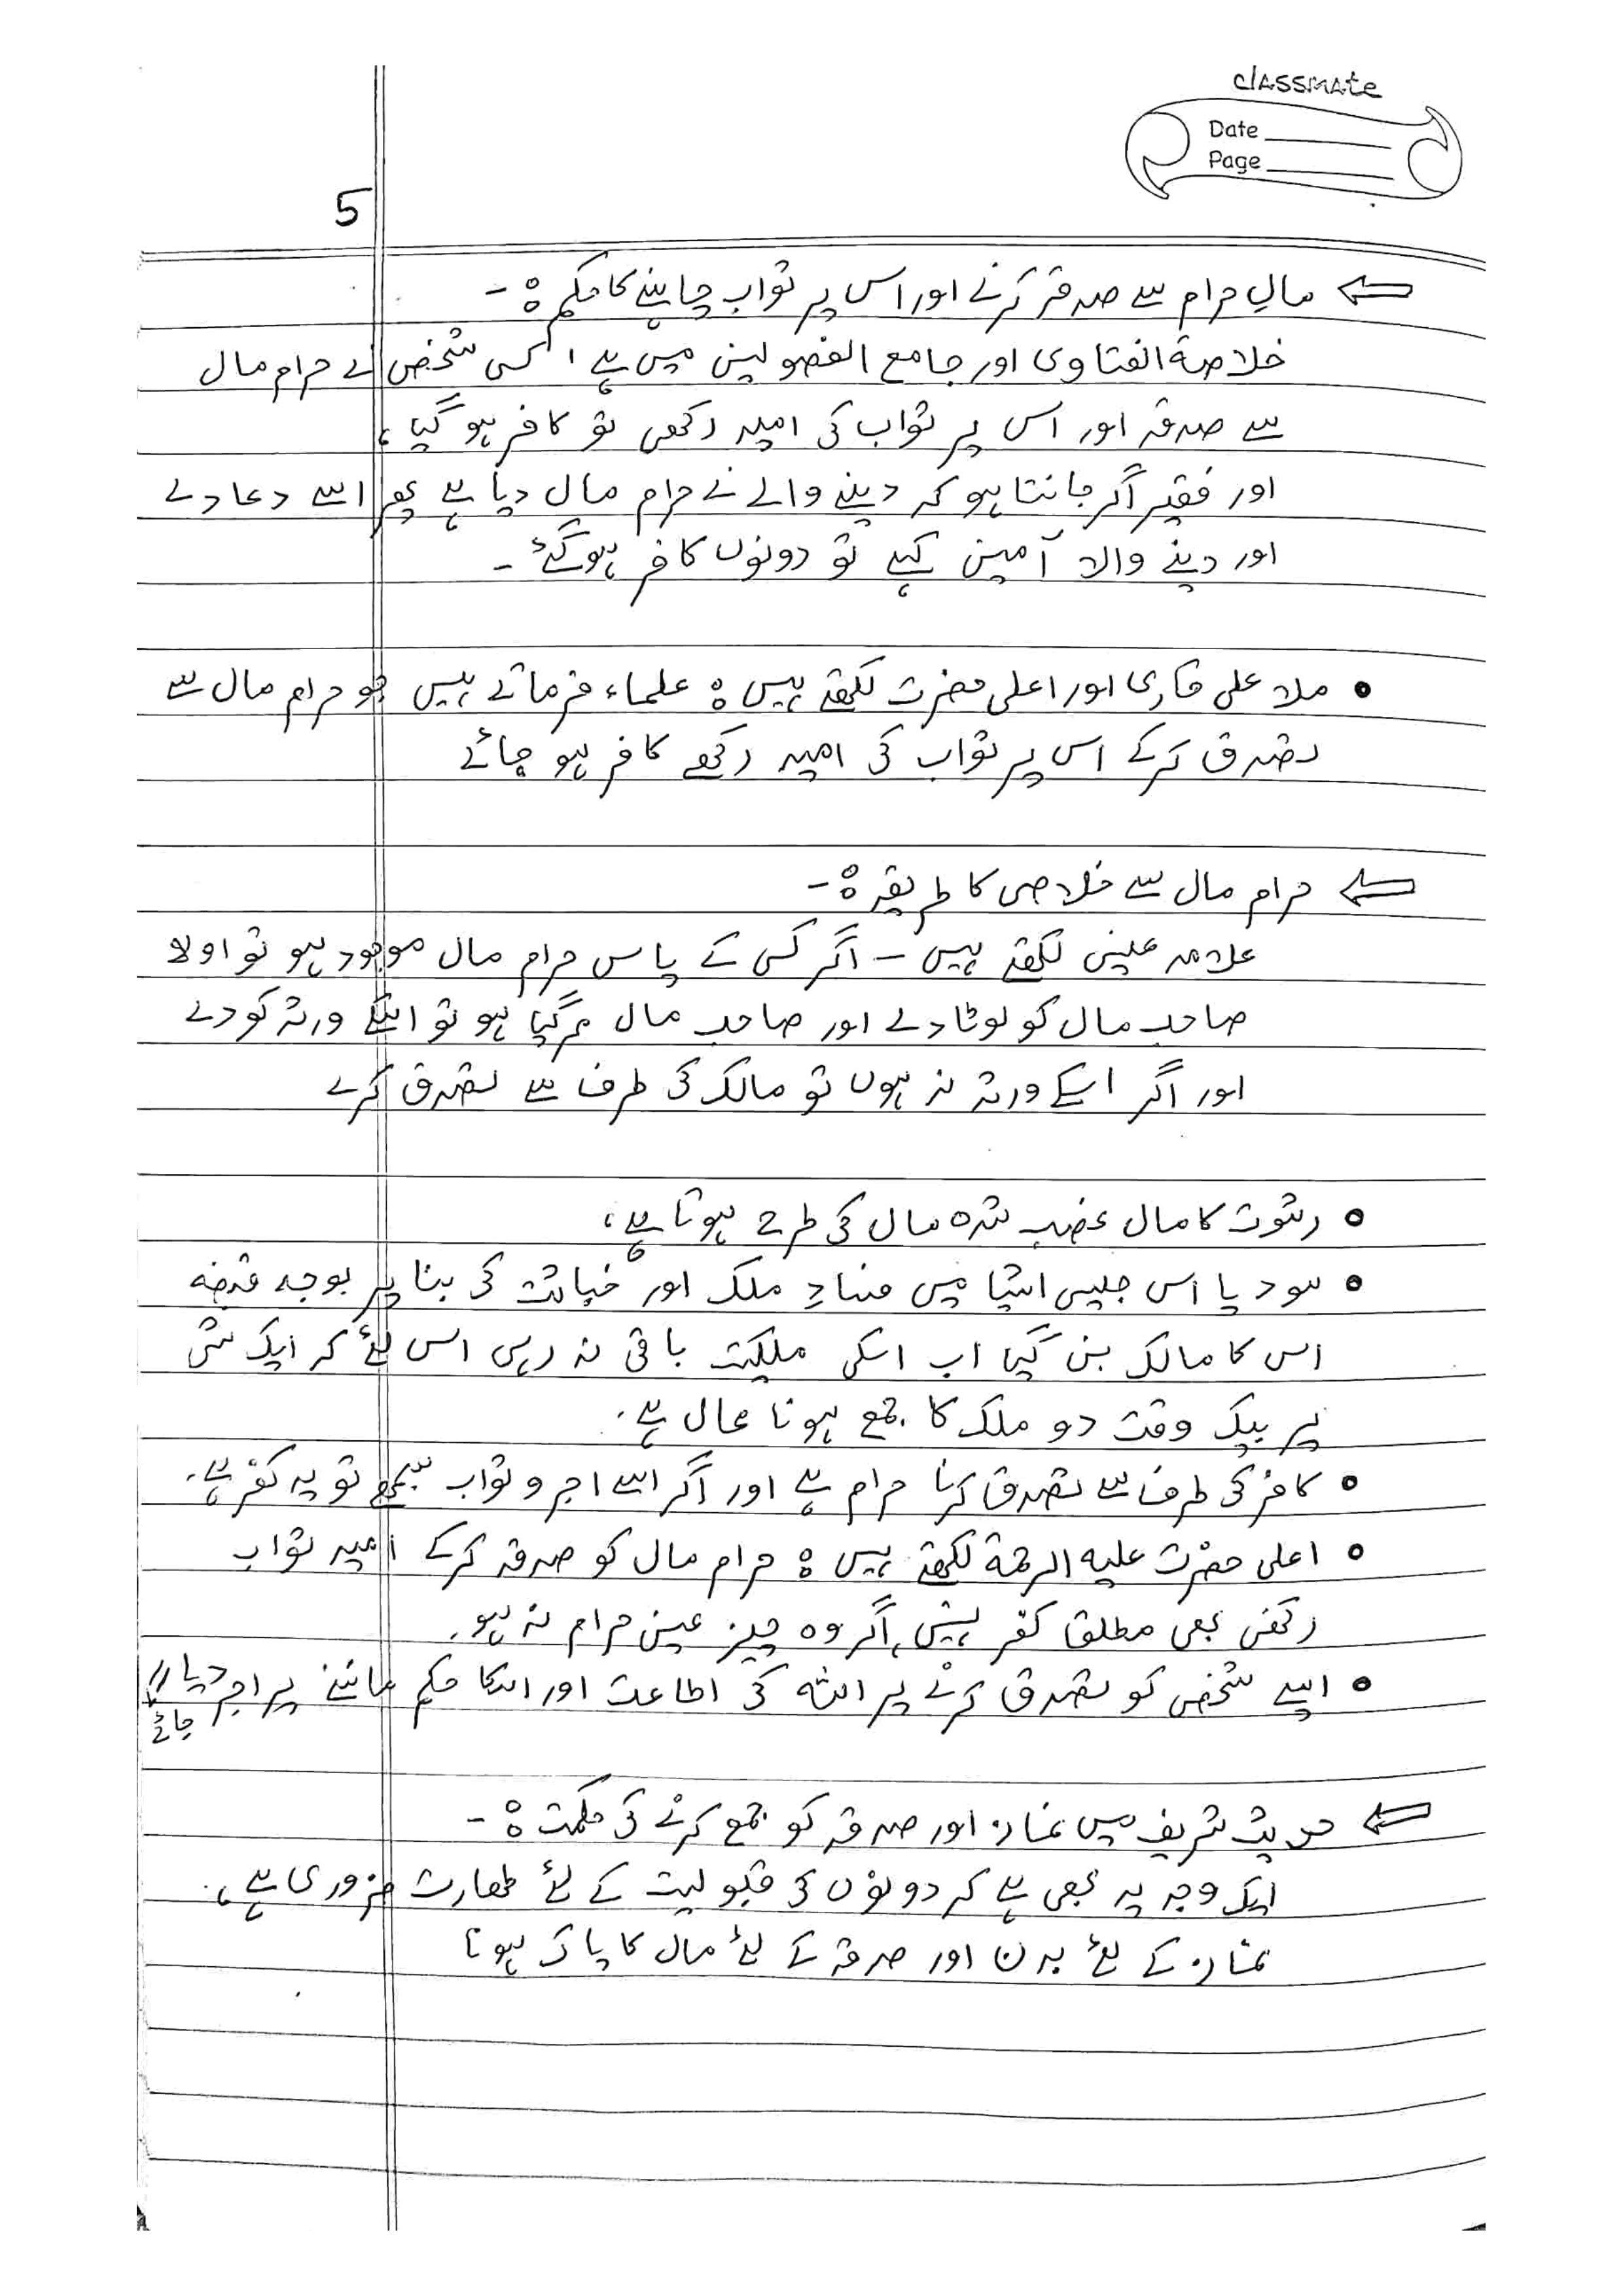 classmate
Date
Page
5
مالِ حرام سے صدقہ کرنے اور اس پر ثواب چاہنے کا حکم :-
خلاصۃ الفتاوی اور جامع الفصولین میں ہے، کسی شخص نے حرام مال
سے صدقہ اور اس پر ثواب کی امید رکھی تو کافر ہو گیا،
اور فقیر اگر جانتا ہو کہ دینے والے نے حرام مال دیا ہے پھر اسے دعا دے
اور دینے والا آمین کہے تو دونوں کافر ہو گئے -
• ملا علی قاری اور اعلی حضرت لکھتے ہیں : علماء فرماتے ہیں جو حرام مال سے
تصدق کر کے اس پر ثواب کی امید رکھے کافر ہو جائے
حرام مال سے خلاصی کا طریقہ :-
علامہ عینی لکھتے ہیں - اگر کسی کے پاس حرام مال موجود ہو تو اولا
صاحب مال کو لوٹا دے اور صاحب مال مر گیا ہو تو اسکے ورثہ کو دے
اور اگر اسکے ورثہ نہ ہوں تو مالک کی طرف سے تصدق کرے
• رشوت کا مال غصب شدہ مال کی طرح ہوتا ہے،
• سود یا اس جیسی اشیا میں فسادِ ملک اور خباثت کی بنا پر بوجہ قبضہ
اس کا مالک بن گیا اب اسکی ملکیت باقی نہ رہی اس لئے کہ ایک شی
پر بیک وقت دو ملک کا جمع ہونا محال ہے.
• کافر کی طرف سے تصدق کرنا حرام ہے اور اگر اسے اجر و ثواب سمجھے تو یہ کفر ہے.
• اعلی حضرت علیہ الرحمۃ لکھتے ہیں : حرام مال کو صدقہ کر کے امید ثواب
رکھنی بھی مطلقا کفر نہیں، اگر وہ چیز عین حرام نہ ہو.
• ایسے شخص کو تصدق کرنے پر اللہ کی اطاعت اور اسکا حکم ماننے پر اجر دیا
جائے
حدیث شریف میں نماز اور صدقہ کو جمع کرنے کی حکمت :-
ایک وجہ یہ بھی ہے کہ دونوں کی قبولیت کے لئے طہارت ضروری ہے،
نماز کے لئے بدن اور صدقہ کے لئے مال کا پاک ہونا